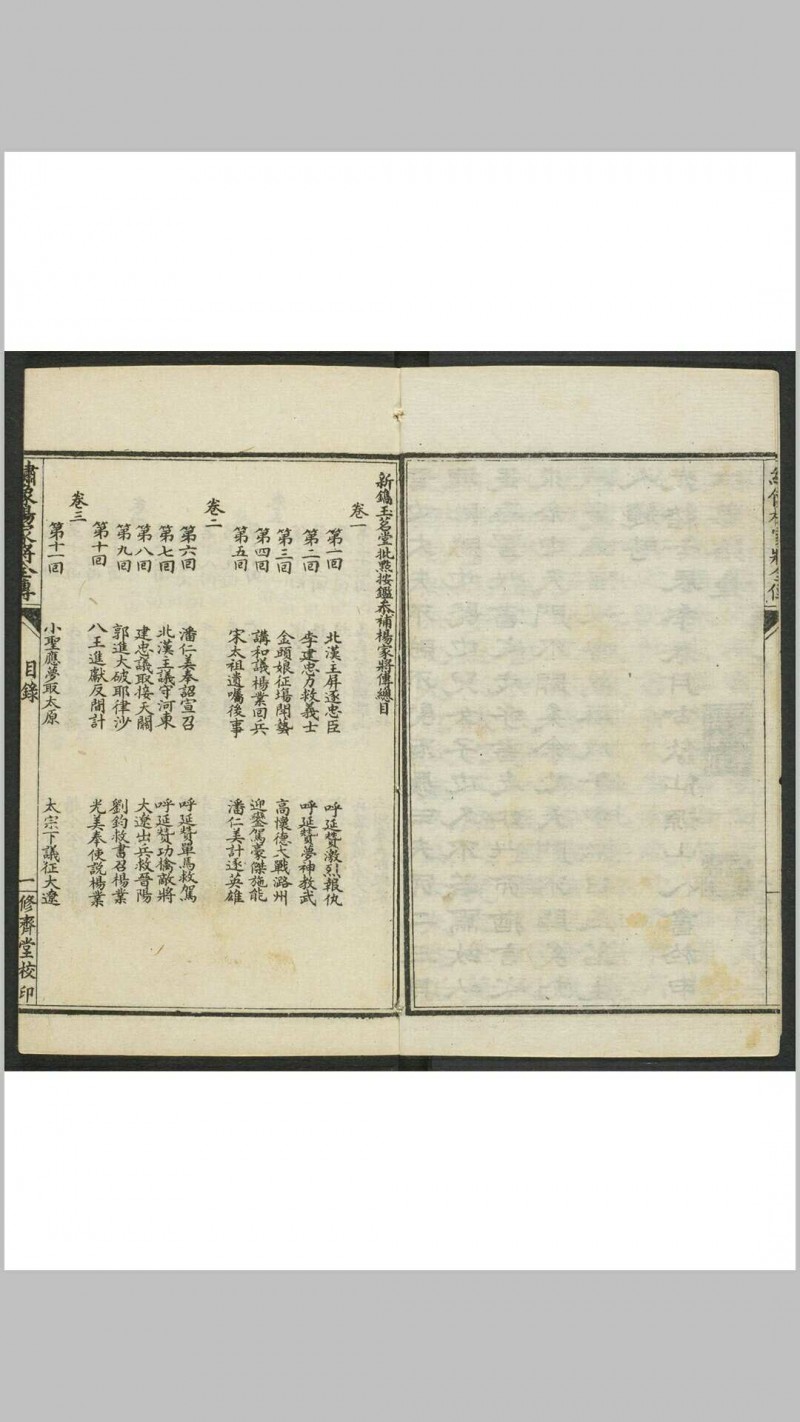 新鐫玉茗堂批點按鑑叅補楊家將傳總目
卷一
第一回 北漢主屏逐忠臣 呼延贊激烈報仇
第二回 李建忠力救義士 呼延贊夢神教武
第三回 金頭娘征塲鬪藝 高懷德大戰潞州
第四回 講和議楊業回兵 迎鑾駕豪傑施能
第五回 宋太祖遺囑後事 潘仁美計逐英雄
卷二
第六回 潘仁美奉詔宣召 呼延贊單馬救駕
第七回 北漢主議守河東 呼延贊功擒敵將
第八回 建忠議取接天關 大遼出兵救晉陽
第九回 郭進大破耶律沙 劉鈞敕書召楊業
第十回 八王進獻反間計 光美奉使說楊業
卷三
第十一回 小聖應夢取太原 太宗下議征大遼
繡像楊家將全傳 目錄 一 修齊堂校印